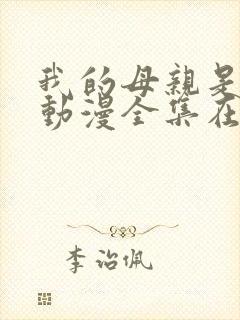 我的母親是
動漫全集在
李治佩